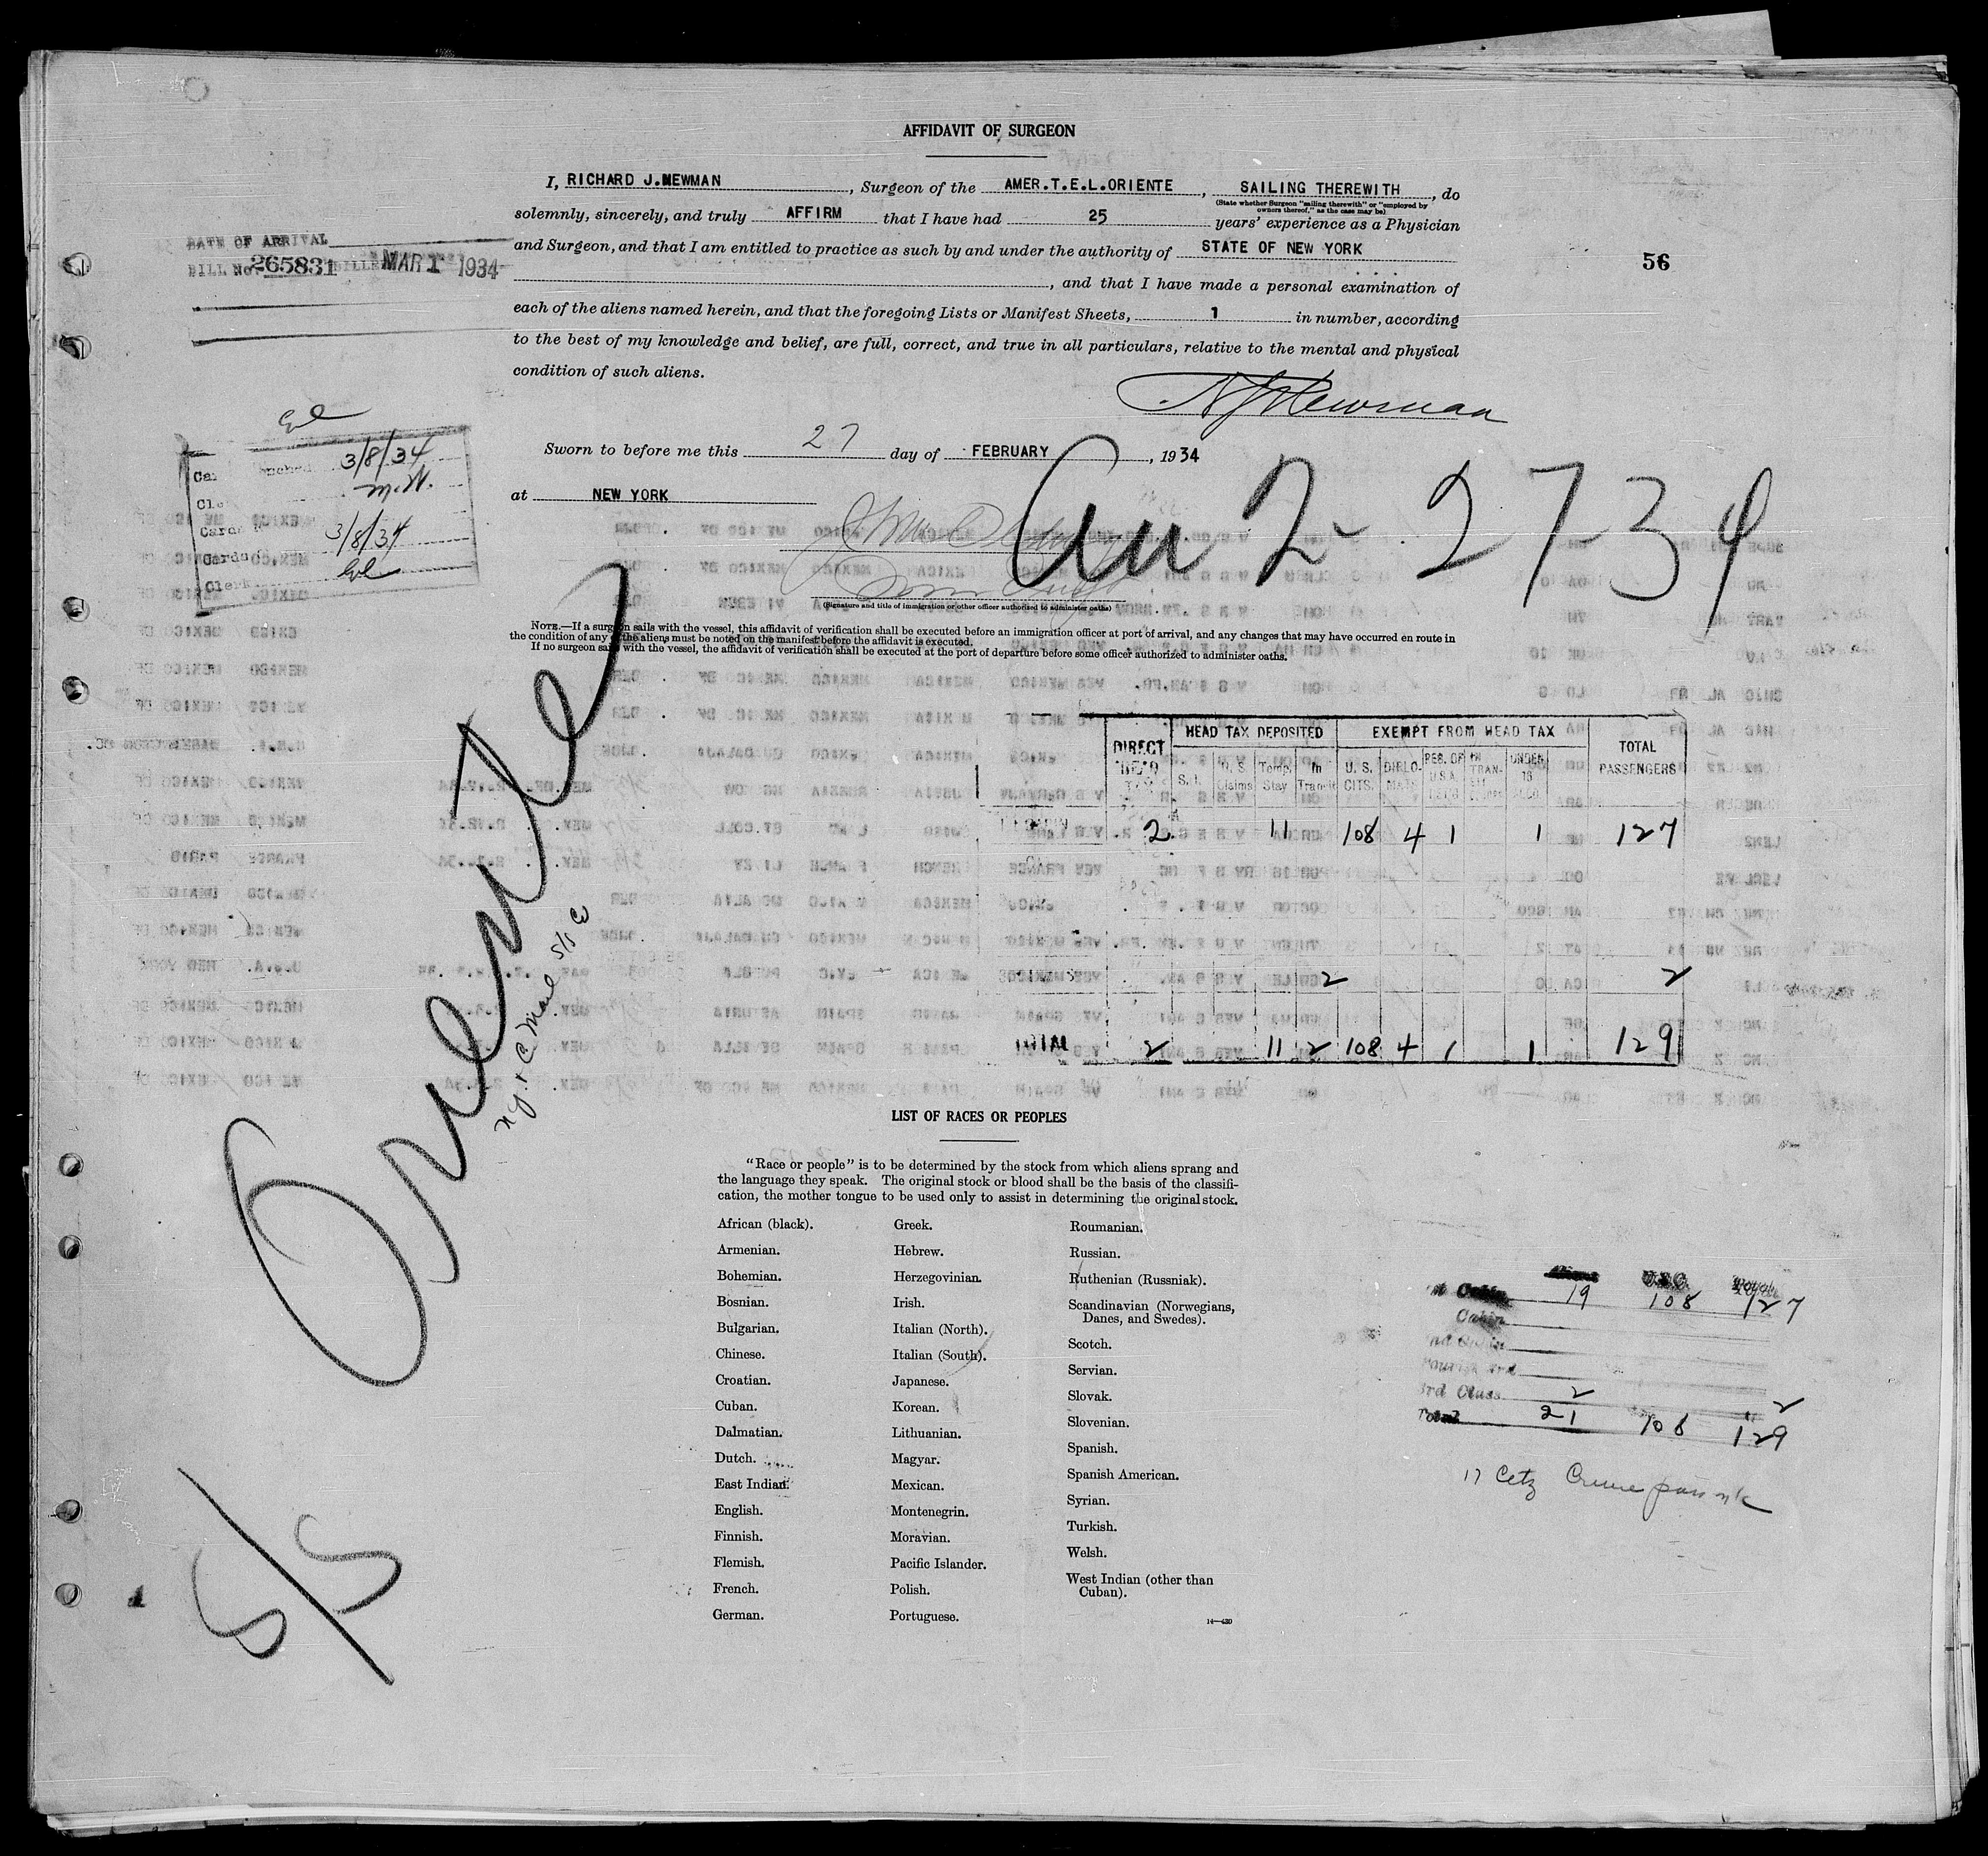 AFFIDAVIT OF SURGEON
I, RICHARD J.NEWMAN, Surgeon of the AMER.T.E.L.ORIENTE, SAILING THEREWITH, do
(State whether Surgeon "sailing therewith" or "employed by owners thereof," as the case may be)
solemnly, sincerely, and truly AFFIRM that I have had 25 years' experience as a Physician
and Surgeon, and that I am entitled to practice as such by and under the authority of STATE OF NEW YORK
, and that I have made a personal examination of
each of the aliens named herein, and that the foregoing Lists or Manifest Sheets, 1 in number, according
to the best of my knowledge and belief, are full, correct, and true in all particulars, relative to the mental and physical
condition of such aliens.
DATE OF ARRIVAL
BILL No. 265831 BILLED MAR 1 1934
56
RJNewman
Sworn to before me this 27 day of FEBRUARY, 1934
at NEW YORK
3/8/34
M.N.
3/8/34
Clerk
Arr 2-27-34
(Signature and title of immigration or other officer authorized to administer oaths)
NOTE.—If a surgeon sails with the vessel, this affidavit of verification shall be executed before an immigration officer at port of arrival, and any changes that may have occurred en route in
the condition of any of the aliens must be noted on the manifest before the affidavit is executed.
If no surgeon sails with the vessel, the affidavit of verification shall be executed at the port of departure before some officer authorized to administer oaths.
S/S Oriente
N.Y. & C. Mail S/S Co
DIRECT HEAD TAX HEAD TAX DEPOSITED EXEMPT FROM HEAD TAX TOTAL PASSENGERS
S.I. U.S. Claims Temp. Stay In Transit U.S. CITS. DIPLO-MATS RES. OF U.S.A. IN TRAN-SIT UNDER 16
2 11 108 4 1 1 127
2 2
TOTAL 2 11 2 108 4 1 1 129
LIST OF RACES OR PEOPLES
"Race or people" is to be determined by the stock from which aliens sprang and
the language they speak. The original stock or blood shall be the basis of the classifi-
cation, the mother tongue to be used only to assist in determining the original stock.
African (black).
Armenian.
Bohemian.
Bosnian.
Bulgarian.
Chinese.
Croatian.
Cuban.
Dalmatian.
Dutch.
East Indian.
English.
Finnish.
Flemish.
French.
German.
Greek.
Hebrew.
Herzegovinian.
Irish.
Italian (North).
Italian (South).
Japanese.
Korean.
Lithuanian.
Magyar.
Mexican.
Montenegrin.
Moravian.
Pacific Islander.
Polish.
Portuguese.
Roumanian.
Russian.
Ruthenian (Russniak).
Scandinavian (Norwegians,
Danes, and Swedes).
Scotch.
Servian.
Slovak.
Slovenian.
Spanish.
Spanish American.
Syrian.
Turkish.
Welsh.
West Indian (other than
Cuban).
14—430
Aliens U.S.C. Total
Cabin 19 108 127
Cabin
3rd Class 2 2
Total 21 108 129
17 Cetz Cruise pass